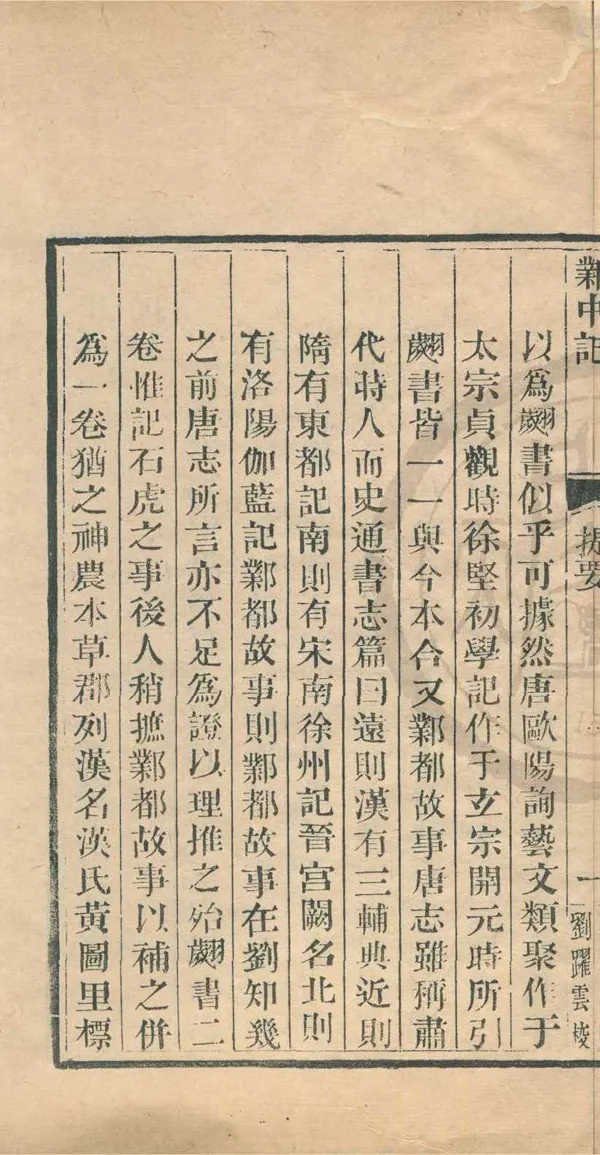 鄴中記
提要
一
劉躍雲校
以爲翽書似乎可據然唐歐陽詢藝文類聚作于
太宗貞觀時徐堅初學記作于玄宗開元時所引
翽書皆一一與今本合又鄴都故事唐志雖稱肅
代時人而史通書志篇曰遠則漢有三輔典近則
隋有東都記南則有宋南徐州記晉宮闕名北則
有洛陽伽藍記鄴都故事則鄴都故事在劉知幾
之前唐志所言亦不足爲證以理推之殆翽書二
卷惟記石虎之事後人稍摭鄴都故事以補之併
爲一卷猶之神農本草郡列漢名漢氏黃圖里標